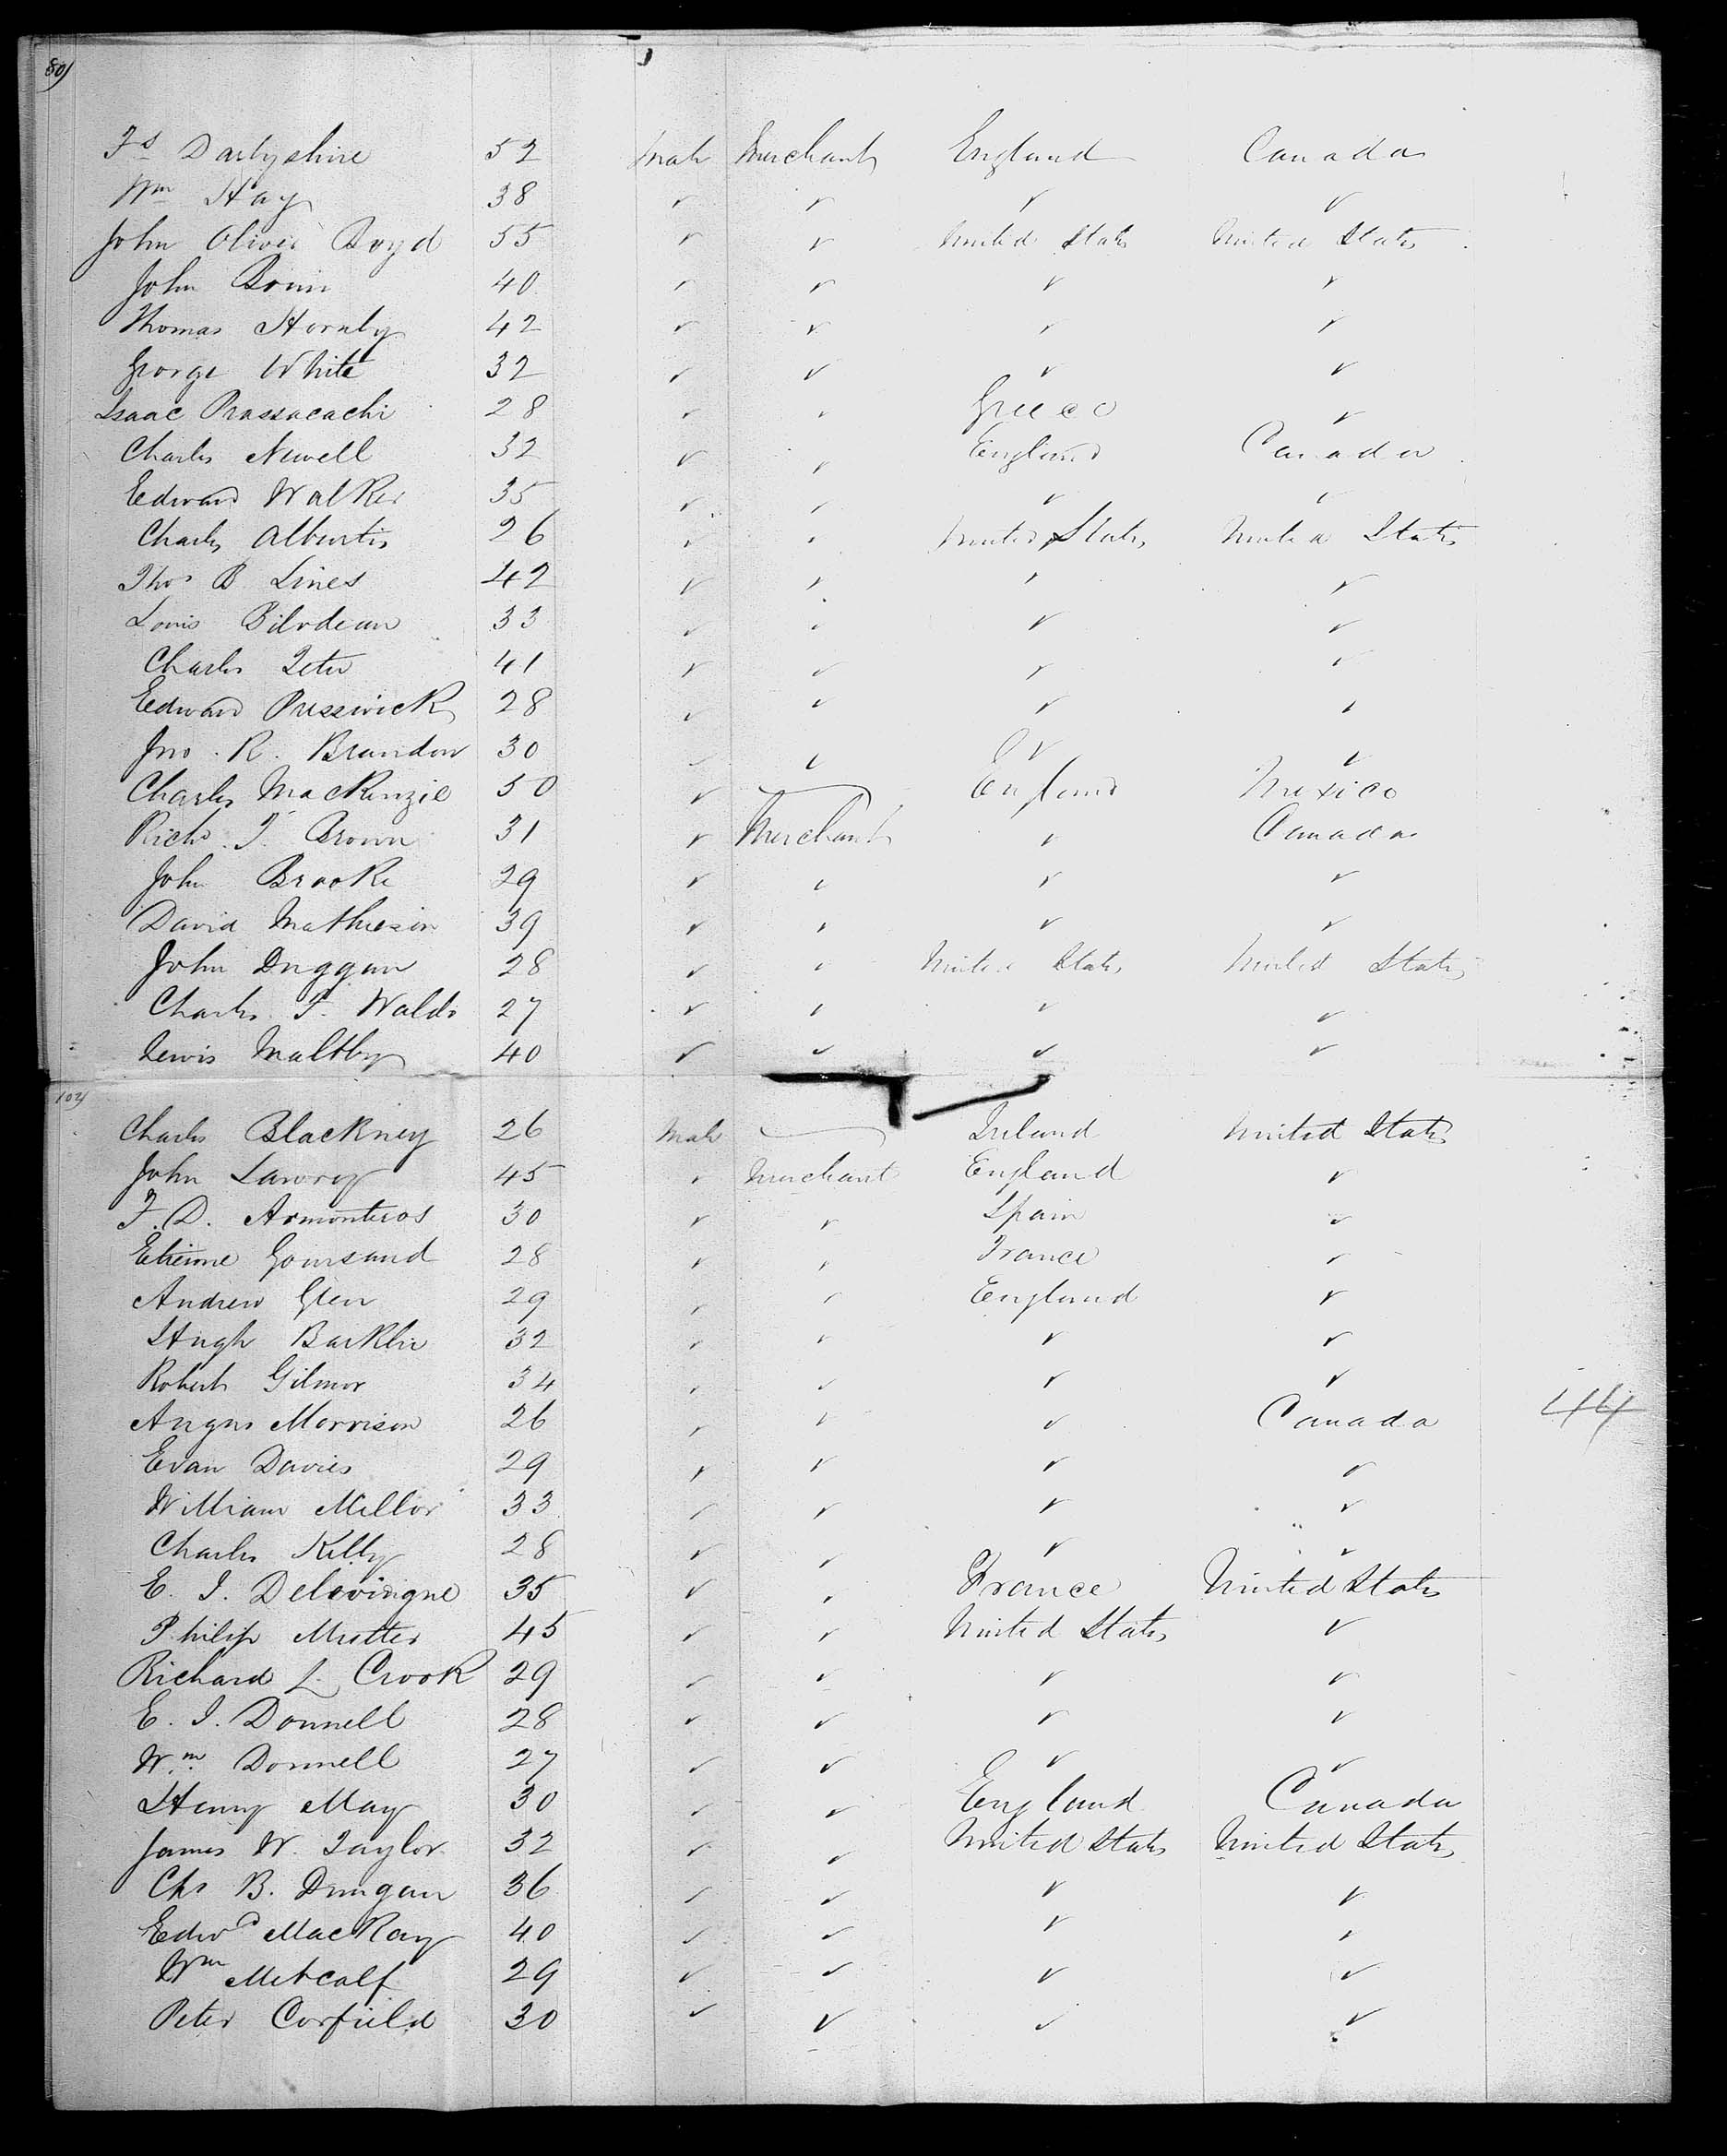 80)
Fs Darbyshire 52 Male Merchant England Canada
Wm Hay 38 ✓ ✓ ✓ ✓
John Oliver Boyd 55 ✓ ✓ United States United States
John 40 ✓ ✓ ✓ ✓
Thomas Hornby 42 ✓ ✓ ✓ ✓
George White 32 ✓ ✓ ✓ ✓
Isaac Prassacachi 28 ✓ ✓ Greece ✓
Charles Newell 32 ✓ ✓ England Canada
Edward Walker 35 ✓ ✓ ✓ ✓
Charles Alburtis 26 ✓ ✓ United States United States
Thos B Lines 42 ✓ ✓ ✓ ✓
Louis Bilodeau 33 ✓ ✓ ✓ ✓
Charles 41 ✓ ✓ ✓ ✓
Edward Pusswick 28 ✓ ✓ ✓ ✓
Jno. R. Brandon 30 ✓ ✓ ✓ ✓
Charles MacKenzie 50 ✓ England Mexico
Richd T. Brown 31 ✓ Merchant ✓ Canada
John Brooke 29 ✓ ✓ ✓ ✓
David Mathieson 39 ✓ ✓ ✓ ✓
John Duggan 28 ✓ ✓ United States United States
Charles F. Waldo 27 ✓ ✓ ✓ ✓
Lewis Maltby 40 ✓ ✓ ✓ ✓
102)
Charles Blackney 26 Male Ireland United States
John Lawroy 45 ✓ Merchant England ✓
F. D. Armonteros 30 ✓ ✓ Spain ✓
Etienne Goursaud 28 ✓ ✓ France ✓
Andrew Glen 29 ✓ ✓ England ✓
Hugh Barklie 32 ✓ ✓ ✓ ✓
Robert Gilmor 34 ✓ ✓ ✓ ✓
Angus Morrison 26 ✓ ✓ ✓ Canada 44
Evan Davies 29 ✓ ✓ ✓ ✓
William Millor 33 ✓ ✓ ✓ ✓
Charles Kelly 28 ✓ ✓ ✓ ✓
E. J. Delavingne 35 ✓ ✓ France United States
Philip Mutter 45 ✓ ✓ United States ✓
Richard L. Crook 29 ✓ ✓ ✓ ✓
E. J. Donnell 28 ✓ ✓ ✓ ✓
Wm. Donnell 27 ✓ ✓ ✓ ✓
Henry May 30 ✓ ✓ England Canada
James W. Taylor 32 ✓ ✓ United States United States
Chs B. Dungan 36 ✓ ✓ ✓ ✓
Edwd MacKay 40 ✓ ✓ ✓ ✓
Wm Metcalf 29 ✓ ✓ ✓ ✓
Peter Corfield 30 ✓ ✓ ✓ ✓